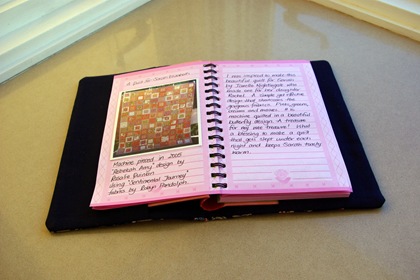 A Quilt for Sarah Elizabeth
Machine pieced in 2005
"Rebekah Amy" design by
Rosalie Quinlan
Using "Sentimental Journey"
fabric by Robyn Pandolph.
I was inspired to make this
beautiful quilt for Sarah
by Jonella Nightingale who
made one for her daughter
Rachel. A simple yet effective
design that showcases this
gorgeous fabric. Pinks, greens,
creams and mauves. It is
machine quilted in a beautiful
butterfly design. A treasure
for my wee treasure! What
a blessing to make a quilt
that gets slept under each
night and keeps Sarah toasty
warm.